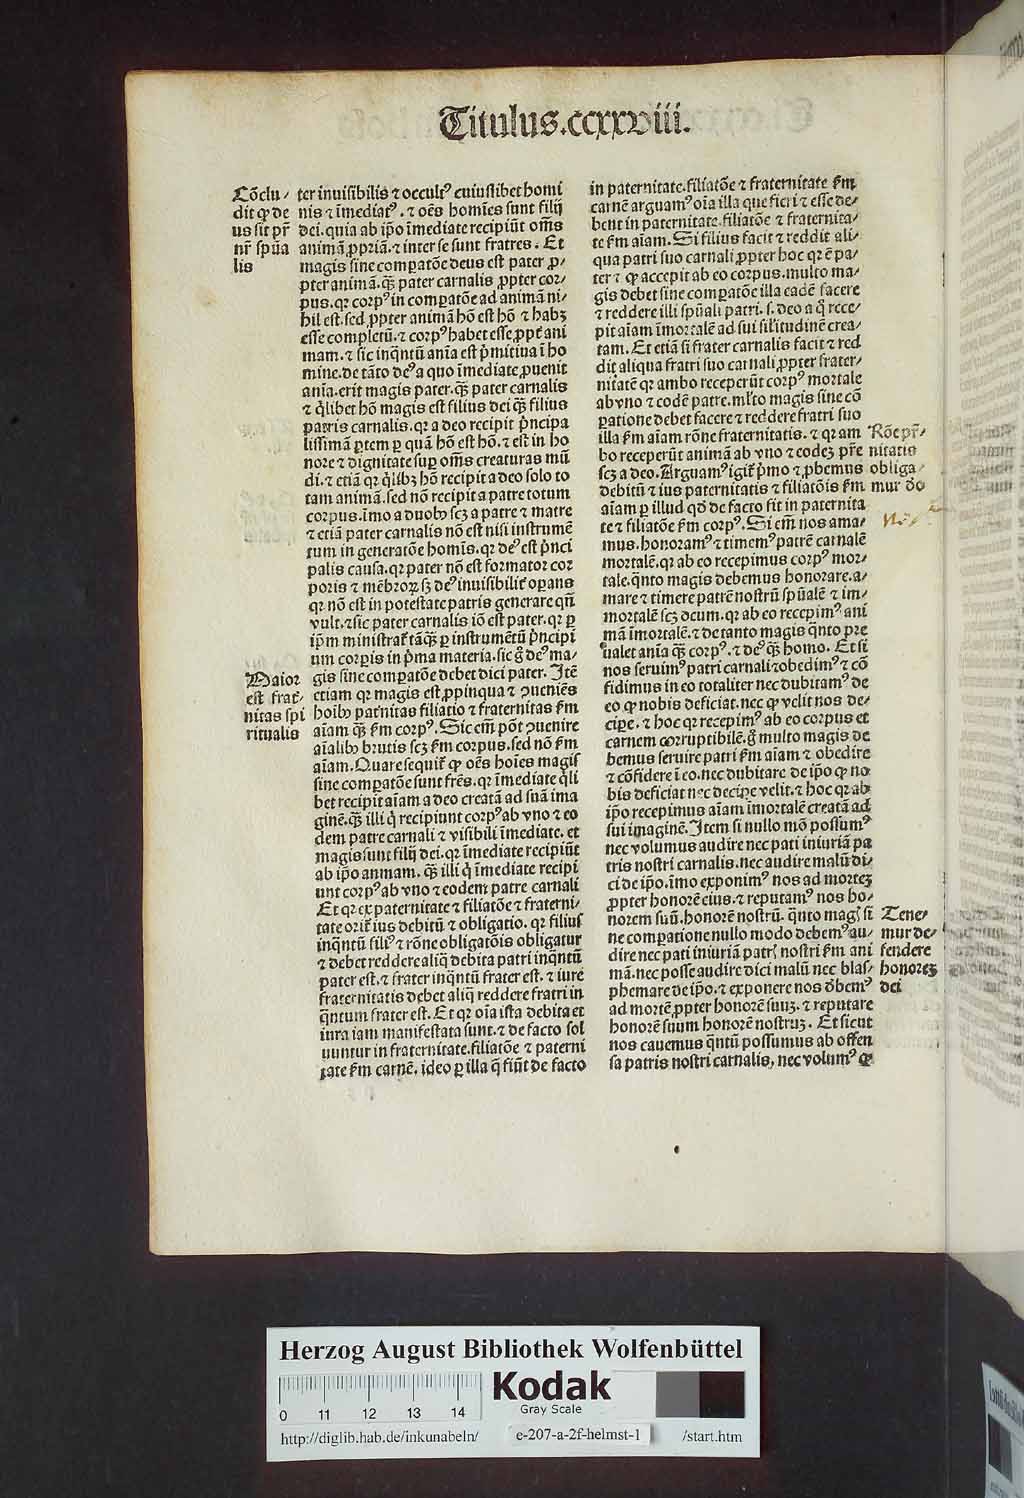 Titulus.ccxxviii.
Cōclu/
dit qꝙ de
us sit pr̄
nr̄ spūa
lis
ter inuisibilis ⁊ occultꝰ cuiuslibet homi
nis ⁊ īmediatꝰ. ⁊ oēs homīes sunt filij
dei. quia ab ip̄o īmediate recipiūt om̄s
animā ꝓpriā. ⁊ inter se sunt fratres. Et
magis sine comꝑatōe deus est pater ꝓ/
pter animā. qꝫ̄ pater carnalis ꝓpter cor/
pus. qꝛ corpꝰ in comꝑatōe ad animā ni/
hil est. sed ꝓpter animā hō est hō ⁊ habꝫ
esse completū. ⁊ corpꝰ habet esse ꝓpt̄ ani
mam. ⁊ sic inq̄ntū anīa est p̄mitiua ī ho
mine. de tāto deꝰ a quo īmediate ꝓuenit
anīa. erit magis pater. qꝫ̄ pater carnalis
⁊ q̄libet hō magis est filius dei qꝫ̄ filius
patris carnalis. qꝛ a deo recipit p̄ncipa
lissimā ꝑtem ꝑ quā hō est hō. ⁊ est in ho
nore ⁊ dignitate suꝑ om̄s creaturas mū
di. ⁊ etiā qꝛ q̄libꝫ hō recipit a deo solo to
tam animā. sed nō recipit a patre totum
corpus. īmo a duobꝰ scꝫ a patre ⁊ matre
⁊ etiā pater carnalis nō est nisi instrumē
tum in generatōe homīs. qꝛ deꝰ est p̄nci
palis causa. qꝛ pater nō est formator cor
poris ⁊ mēbroꝝ sꝫ deꝰ inuisibilit̄ oꝑans
qꝛ nō est in potestate patris generare qn̄
vult. ⁊ sic pater carnalis iō est pater. qꝛ ꝑ
ip̄m ministrat̄ tāqꝫ̄ ꝑ instrumētū p̄ncipi
um corꝑis in p̄ma materia. sic ḡ deꝰ ma/
gis sine comꝑatōe debet dici pater. Itē
etiam qꝛ magis est ꝓpinqua ⁊ ꝯueniēs
hoībꝰ pat̄nitas filiatio ⁊ fraternitas ẜm
aīam qꝫ̄ ẜm corpꝰ. Sic em̄ pōt ꝯuenire
aīalibꝰ brutis scꝫ ẜm corpus. sed nō ẜm
aīam. Quare sequit̄ qꝙ oēs hoīes magis
sine comꝑatōe sunt frēs. qꝛ īmediate q̄li
bet recipit aīam a deo creatā ad suā ima
ginē. qꝫ̄ illi q̄ recipiunt corpꝰ ab vno ⁊ eo
dem patre carnali ⁊ visibili īmediate. et
magis sunt filij dei. qꝛ īmediate recipiūt
ab ip̄o anmam. qꝫ̄ illi q̄ īmediate recipi
unt corpꝰ ab vno ⁊ eodem patre carnali
Et qꝛ ex paternitate ⁊ filiatōe ⁊ fraterni/
tate orit̄ ius debitū ⁊ obligatio. qꝛ filius
inq̄ntū filiꝰ ⁊ rōne obligatōis obligatur
⁊ debet reddere aliq̄ debita patri inq̄ntū
pater est. ⁊ frater inq̄ntū frater est. ⁊ iure
fraternitatis debet aliq̄ reddere fratri in
q̄ntum frater est. Et qꝛ oīa ista debita et
iura iam manifestata sunt. ⁊ de facto sol
uuntur in fraternitate. filiatōe ⁊ paterni
tate ẜm carnē. ideo ꝑ illa q̄ fiūt de facto
Maior
est frat̄/
nitas spi
ritualis
in paternitate. filiatōe ⁊ fraternitate ẜm
carnē arguamꝰ oīa illa que fieri ⁊ esse de/
bent in paternitate. filiatōe ⁊ fraternita/
te ẜm aīam. Si filius facit ⁊ reddit ali/
qua patri suo carnali ꝓpter hoc qꝛ ē pa/
ter ⁊ qꝙ accepit ab eo corpus. multo ma/
gis debet sine comꝑatōe illa eadē facere
⁊ reddere illi spūali patri. s. deo a q̄ rece/
pit aīam īmortalē ad sui sil̄itudinē crea/
tam. Et etiā si frater carnalis facit ⁊ red
dit aliqua fratri suo carnali ꝓpter frater/
nitatē qꝛ ambo receperūt corpꝰ mortale
ab vno ⁊ eodē patre. ml̄to magis sine cō
ꝑatione debet facere ⁊ reddere fratri suo
illa ẜm aīam rōne fraternitatis. ⁊ qꝛ am
bo receperūt animā ab vno ⁊ eodeꝫ pr̄e
scꝫ a deo. Arguamꝰ igit̄ p̄mo ⁊ ꝓbemus
debitū ⁊ ius paternitatis ⁊ filiatōis ẜm
aīam ꝑ illud qd̄ de facto fit in paternita
te ⁊ filiatōe ẜm corpꝰ. Si em̄ nos ama/
mus. honoramꝰ ⁊ timemꝰ patrē carnalē
mortalē. qꝛ ab eo recepimus corpꝰ mor/
tale. q̄nto magis debemus honorare. a/
mare ⁊ timere patrē nostrū spūalē ⁊ im/
mortalē scꝫ deum. qꝛ ab eo recepimꝰ ani
mā īmortalē. ⁊ de tanto magis q̄nto pre
ualet anīa qꝫ̄ corpꝰ. ⁊ deꝰ qꝫ̄ homo. Et si
nos seruimꝰ patri carnali ⁊ obedimꝰ ⁊ cō
fidimus in eo totaliter nec dubitamꝰ de
eo qꝙ nobis deficiat. nec qꝙ velit nos de/
ciꝑe. ⁊ hoc qꝛ recepimꝰ ab eo corpus et
carnem corruptibilē. ḡ multo magis de
bemus seruire patri ẜm aīam ⁊ obedire
⁊ cōfidere ī eo. nec dubitare de ip̄o qꝙ no
bis deficiat nec deciꝑe velit. ⁊ hoc qꝛ ab
ip̄o recepimus aīam īmortalē creatā ad
sui imaginē. Item si nullo mō possumꝰ
nec volumus audire nec pati iniuriā pa
tris nostri carnalis. nec audire malū di/
ci de ip̄o. īmo exponimꝰ nos ad morteꝫ
ꝓpter honorē eius. ⁊ reputamꝰ nos ho/
norem suū. honorē nostrū. q̄nto magꝭ si
ne comꝑatione nullo modo debemꝰ au/
dire nec pati iniuriā patrꝭ nostri ẜm ani
mā. nec posse audire dici malū nec blas/
phemare de ip̄o. ⁊ exponere nos d̄bemꝰ
ad mortē ꝓpter honorē suuꝫ. ⁊ reputare
honorē suum honorē nostruꝫ. Et sicut
nos cauemus q̄ntū possumus ab offen
sa patris nostri carnalis, nec volumꝰ qꝙ
Rōe pr̄/
nitatis
obliga/
mur deo
Tene/
mur de/
fendere
honoreꝫ
dei
Herzog August Bibliothek Wolfenbüttel
Kodak
Gray Scale
0 11 12 13 14
http://diglib.hab.de/inkunabeln/ e-207-a-2f-helmst-1 /start.htm